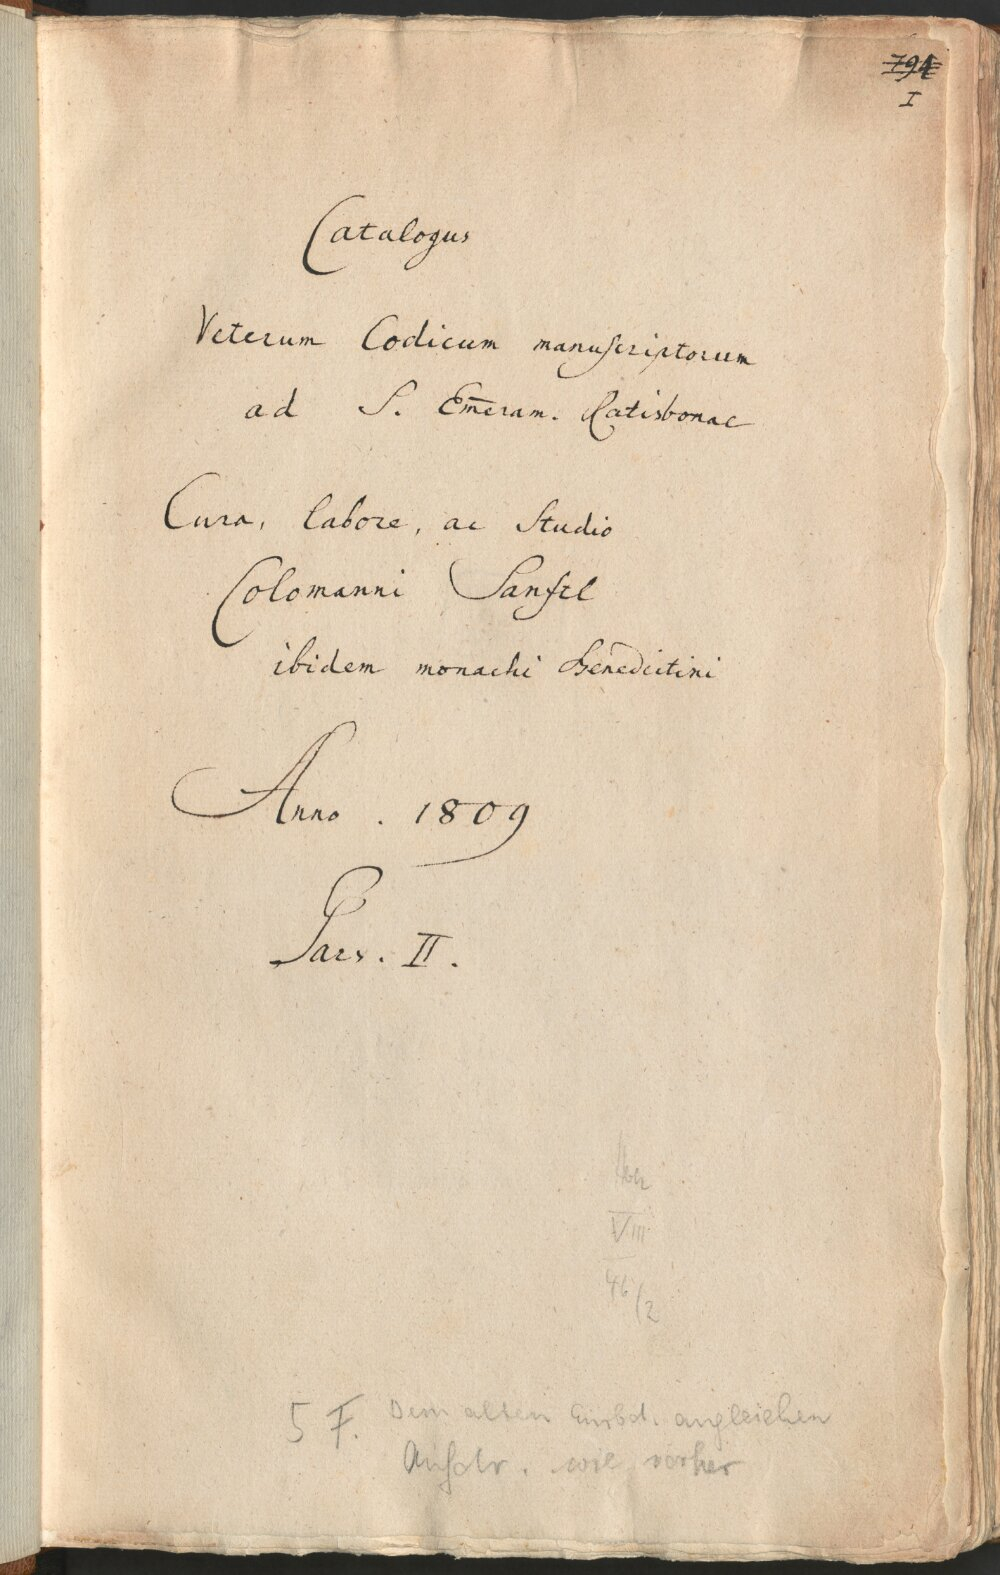 794
I
Catalogus
Veterum Codicum manuscriptorum
ad S. Em̅eram. Ratisbonae
Cura, labore, ac Studio
Colomanni Sanftl
ibidem monachi Benedictini
Anno. 1809
Pars. II.
Cbh
VIII
46/2
5 F. Dem alten Einbd. angleichen
Aufschr. wie vorher